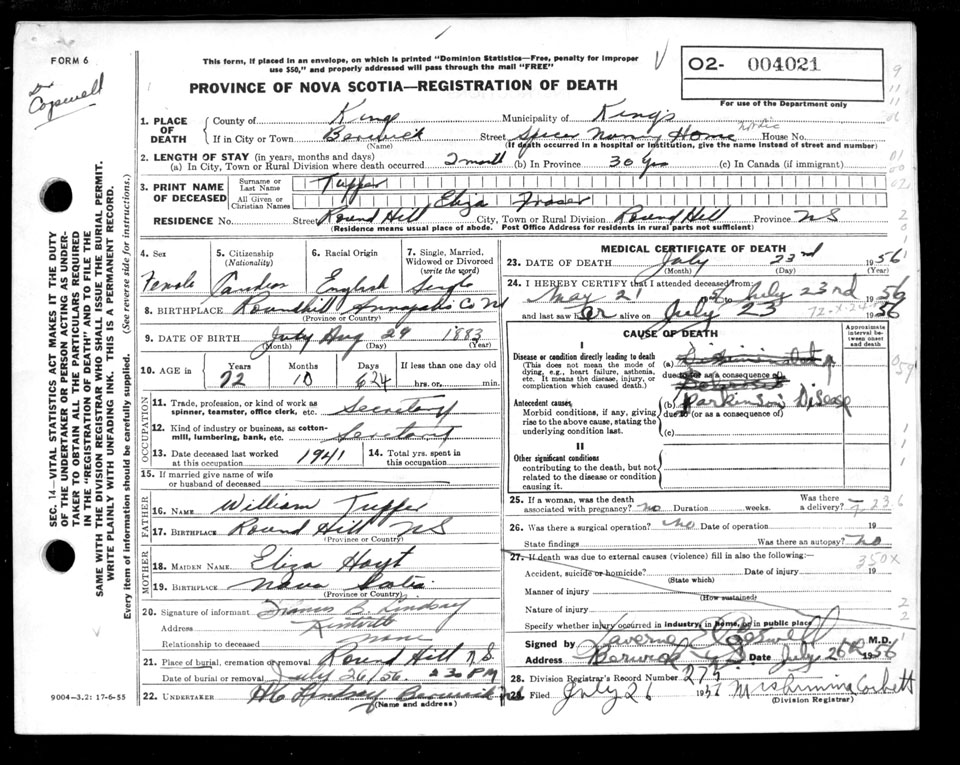 FORM 6
Dr Cogswell
This form, if placed in an envelope, on which is printed "Dominion Statistics—Free, penalty for improper
use $50," and properly addressed will pass through the mail "FREE"
PROVINCE OF NOVA SCOTIA—REGISTRATION OF DEATH
O2- 004021
For use of the Department only
1. PLACE OF DEATH
County of Kings Municipality of Kings
If in City or Town Berwick Street Spicer Nursing Home House No.
(Name) (If death occurred in a hospital or institution, give the name instead of street and number)
2. LENGTH OF STAY (in years, months and days)
(a) In City, Town or Rural Division where death occurred 2 month (b) In Province 30 yrs (c) In Canada (if immigrant)
3. PRINT NAME OF DECEASED
Surname or Last Name Tupper
All Given or Christian Names Eliza Fraser
RESIDENCE No. Street Round Hill City, Town or Rural Division Round Hill Province NS
(Residence means usual place of abode. Post Office Address for residents in rural parts not sufficient)
4. Sex Female
5. Citizenship (Nationality) Canadian
6. Racial Origin English
7. Single, Married, Widowed or Divorced (write the word) Single
8. BIRTHPLACE Roundhill Annapolis Co NS
(Province or Country)
9. DATE OF BIRTH July Aug 29 1883
(Month) (Day) (Year)
10. AGE in Years 72 Months 10 Days 24 If less than one day old hrs. or min.
OCCUPATION
11. Trade, profession, or kind of work as spinner, teamster, office clerk, etc. Secretary
12. Kind of industry or business, as cotton-mill, lumbering, bank, etc. Secretary
13. Date deceased last worked at this occupation 1941
14. Total yrs. spent in this occupation
15. If married give name of wife or husband of deceased
FATHER
16. NAME William Tupper
17. BIRTHPLACE Round Hill NS
(Province or Country)
MOTHER
18. MAIDEN NAME Eliza Hoyt
19. BIRTHPLACE Nova Scotia
(Province or Country)
20. Signature of informant Francis B. Lindsay
Address Kentville
Relationship to deceased none
21. Place of burial, cremation or removal Round Hill N.S.
Date of burial or removal July 26/56. 2:30 PM
22. UNDERTAKER H C Lindsay Berwick NS
(Name and address)
9004—3.2: 17-6-55
MEDICAL CERTIFICATE OF DEATH
23. DATE OF DEATH July 23rd 1956
(Month) (Day) (Year)
24. I HEREBY CERTIFY that I attended deceased from:
May 21 to July 23rd 1956
and last saw her alive on July 23 1956
72-X-24
CAUSE OF DEATH
Approximate interval between onset and death
I
Disease or condition directly leading to death
(This does not mean the mode of dying, e.g., heart failure, asthenia, etc. It means the disease, injury, or complication which caused death.)
(a)
due to (or as a consequence of)
Antecedent causes
Morbid conditions, if any, giving rise to the above cause, stating the underlying condition last.
(b) Parkinsons Disease
due to (or as a consequence of)
(c)
II
Other significant conditions
contributing to the death, but not related to the disease or condition causing it.
25. If a woman, was the death associated with pregnancy? no Duration weeks. Was there a delivery?
26. Was there a surgical operation? no Date of operation 19
State findings Was there an autopsy? no
27. If death was due to external causes (violence) fill in also the following:
350X
Accident, suicide or homicide? Date of injury 19
(State which)
Manner of injury
(How sustained)
Nature of injury
Specify whether injury occurred in industry, in home, or in public place
Signed by Laverne Cogswell M.D.
Address Berwick N S Date July 26th 1956
28. Division Registrar's Record Number 275
29. Filed July 26 1956 Corbett
(Division Registrar)
SEC. 14—VITAL STATISTICS ACT MAKES IT THE DUTY
OF THE UNDERTAKER OR PERSON ACTING AS UNDER-
TAKER TO OBTAIN ALL THE PARTICULARS REQUIRED
IN THE "REGISTRATION OF DEATH" AND TO FILE THE
SAME WITH THE DIVISION REGISTRAR WHO SHALL ISSUE THE BURIAL PERMIT.
WRITE PLAINLY WITH UNFADING INK. THIS IS A PERMANENT RECORD.
Every item of information should be carefully supplied. (See reverse side for instructions.)